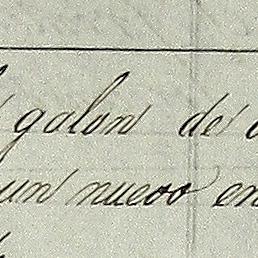 galon de
un nuevo en